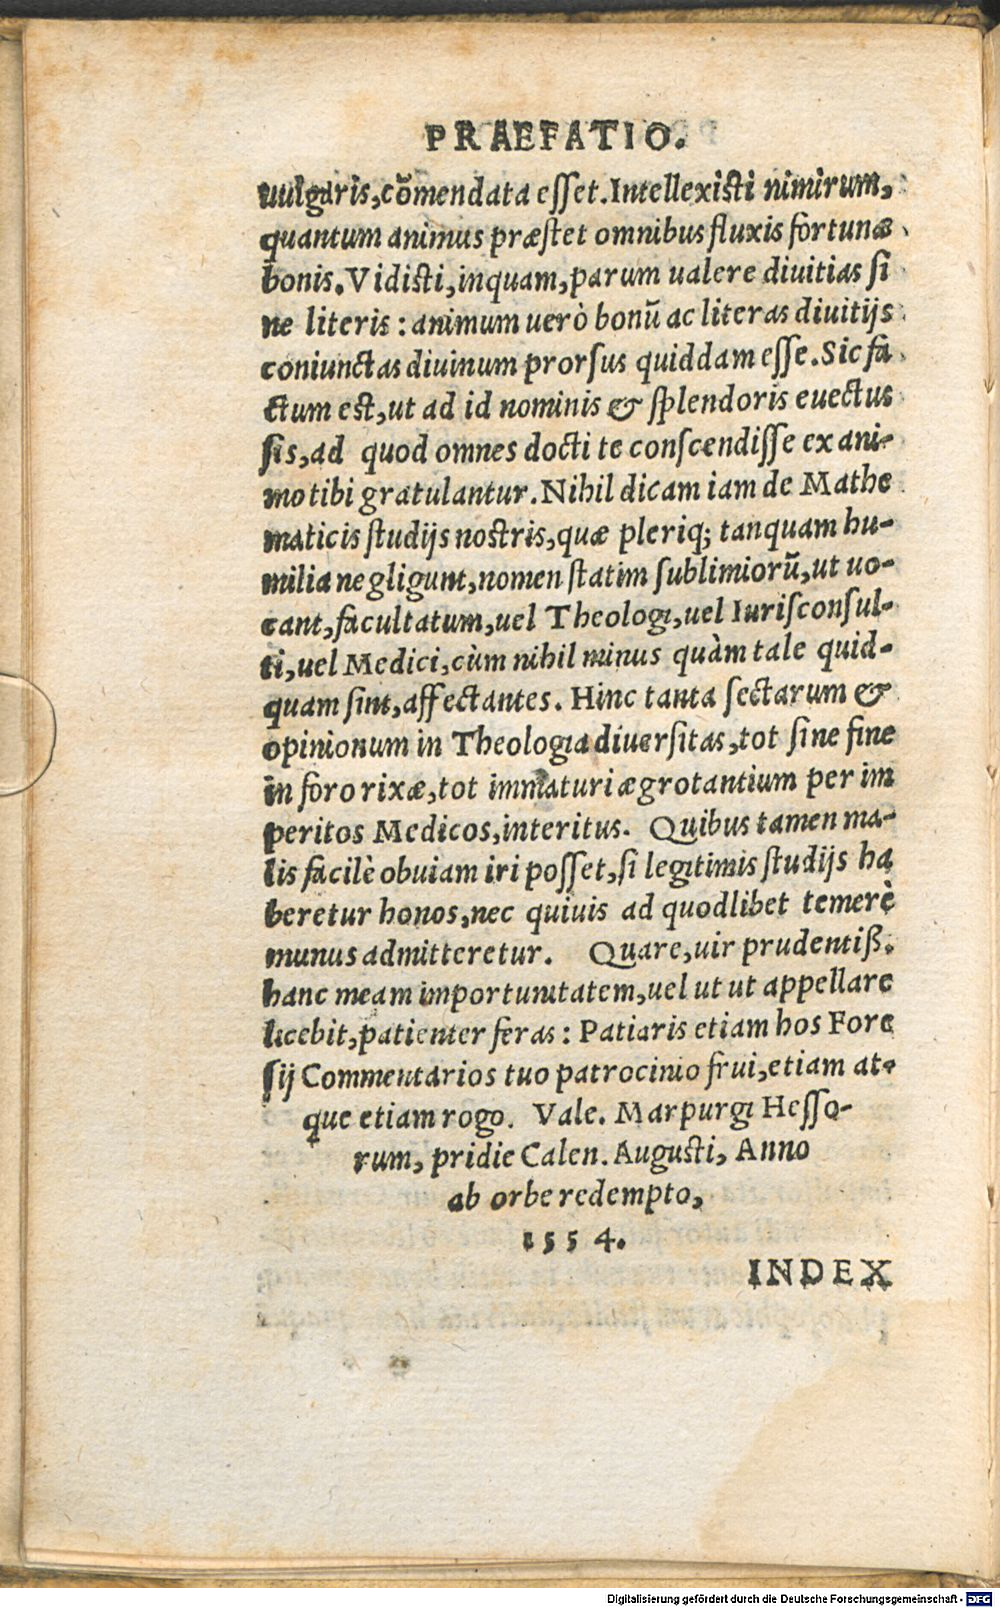 PRAEFATIO.
uulgaris, cōmendata esset. Intellexisti nimirum,
quantum animus præstet omnibus fluxis fortunæ
bonis. Vidisti, inquam, parum ualere diuitias si
ne literis: animum uerò bonū ac literas diuitijs
coniunctas diuinum prorsus quiddam esse. Sic fa
ctum est, ut ad id nominis & splendoris euectus
sis, ad quod omnes docti te conscendisse ex ani-
mo tibi gratulantur. Nihil dicam iam de Mathe
maticis studijs nostris, quæ pleriq; tanquam hu-
milia negligunt, nomen statim sublimiorū, ut uo-
cant, facultatum, uel Theologi, uel Iurisconsul-
ti, uel Medici, cùm nihil minus quàm tale quid-
quam sint, affectantes. Hinc tanta sectarum &
opinionum in Theologia diuersitas, tot sine fine
in foro rixæ, tot immaturi ægrotantium per im
peritos Medicos, interitus. Quibus tamen ma-
lis facilè obuiam iri posset, si legitimis studijs ha
beretur honos, nec quiuis ad quodlibet temerè
munus admitteretur. Quare, uir prudentiß.
hanc meam importunitatem, uel ut ut appellare
licebit, patienter feras: Patiaris etiam hos Fore
sij Commentarios tuo patrocinio frui, etiam at-
que etiam rogo. Vale. Marpurgi Hesso-
rum, pridie Calen. Augusti, Anno
ab orbe redempto,
1554.
INDEX
Digitalisierung gefördert durch die Deutsche Forschungsgemeinschaft - DFG